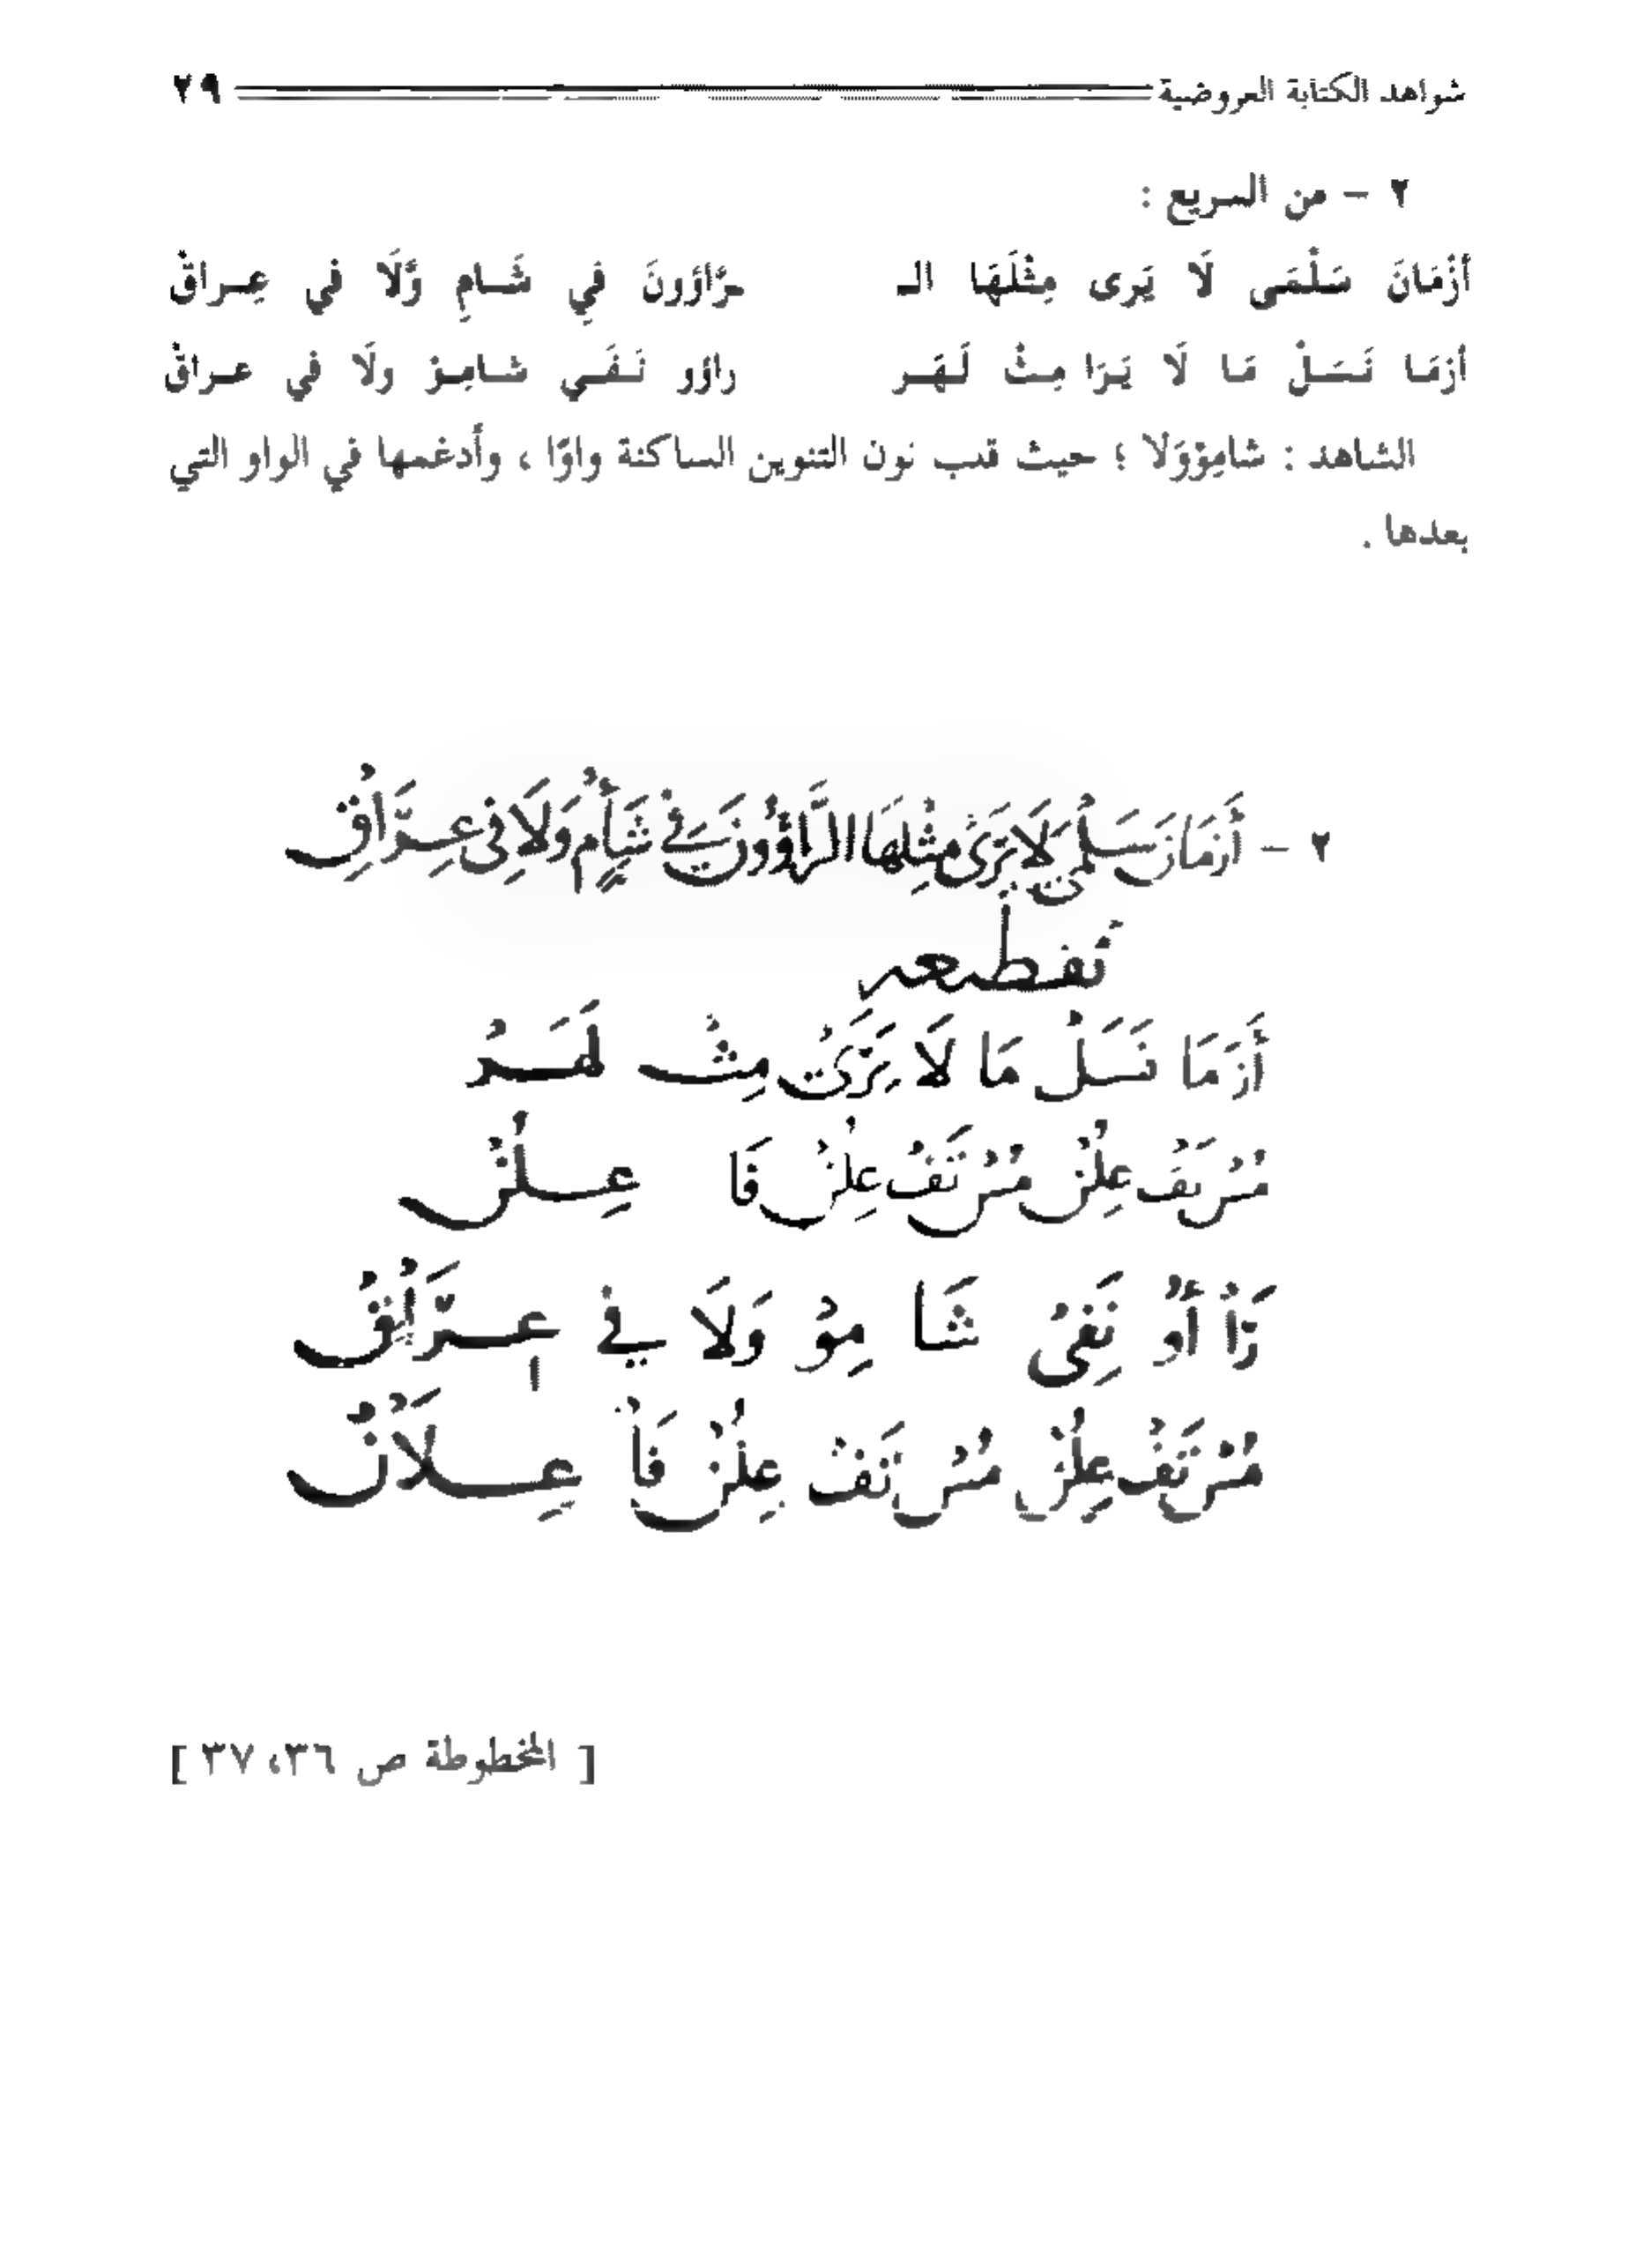 شواهد الكتابة العروضية ٢٩
٢ – من السريع :
أزْمَانَ سَلْمَى لَا يَرى مِثْلَهَا الـ ـرَّاؤونَ فِي شَـامِ وَّلَا في عِـراقْ
أزمَـا نَـسَـلْ مَـا لَا يَـرَا مِـثْ لَـهَـر راؤو نَـفَـي شـامِـوْ ولَا في عـراقْ
الشاهد : شامِوْوَلَا ؛ حيث قلب نون التنوين الساكنة واوًا ، وأدغمها في الواو التي
بعدها .
٢ – أَزْمَانَ سَلْمَى لَا يَرَى مِثْلَهَا الرَّاؤُونَ فِي شَأْمٍ وَلَا فِي عِرَاقْ
تقطيعه
أَزْمَا نَسَلْ مَا لَا يَرَىْ مِثْ لَهَرْ
مُسْتَفْ عِلُنْ مُسْتَفْ عِلُنْ فَا عِلُنْ
رَاْ أُوْ نَفِىْ شَا مِوْ وَلَا فِي عِرَاقْ
مُسْتَفْ عِلُنْ مُسْتَفْ عِلُنْ فَاْ عِلَانْ
[ المخطوطة ص ٣٦، ٣٧ ]